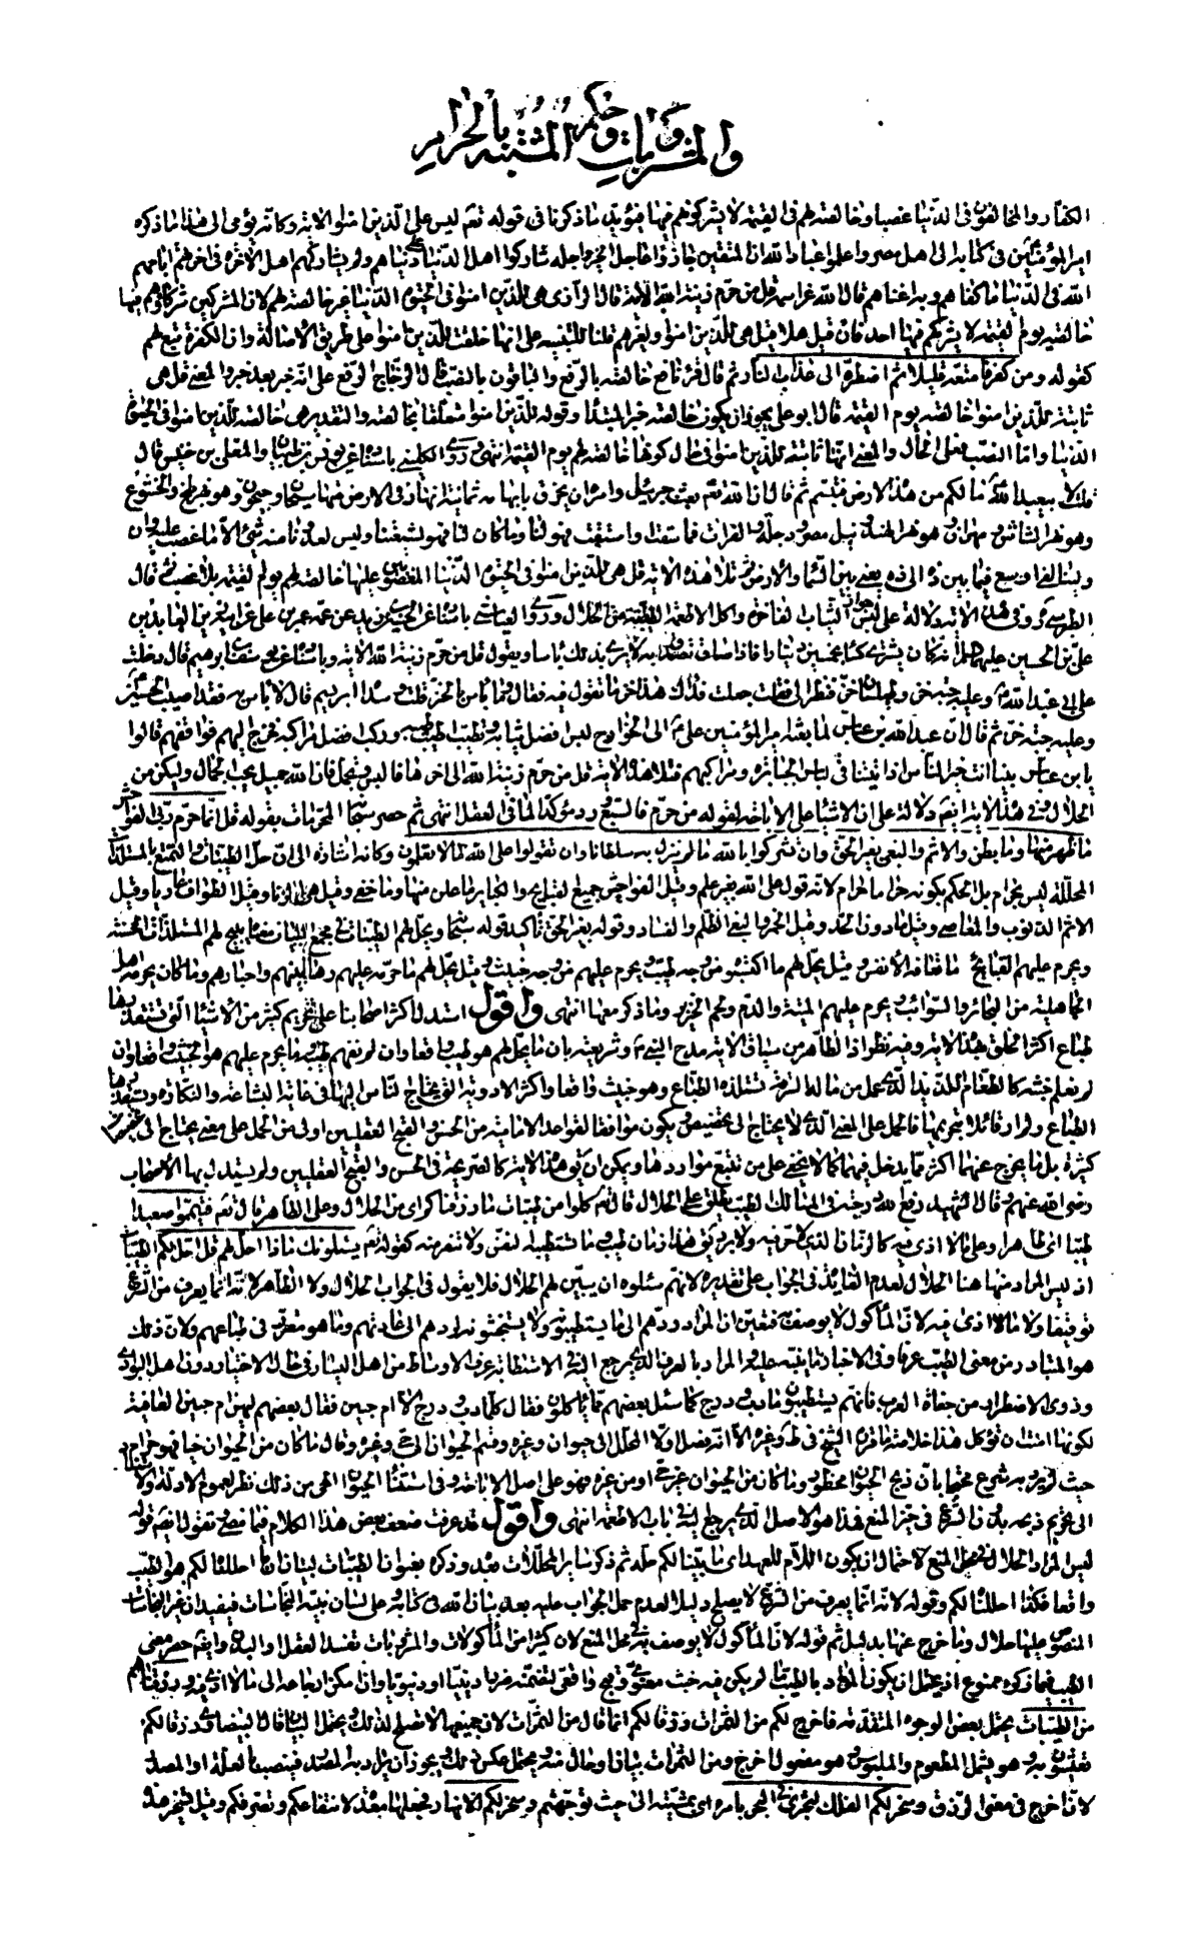 والمشروبات وحكم المشتبه بالحرام
الكفار والمخالفون فى الدنيا غصبا وخالصة لهم فى القيمة لا يشركونهم فيها فيؤيد ما ذكرنا فى قوله تعم ليس على الذين امنوا الاية وكانه يؤمى الى هذا ما ذكره
امير المؤمنين فى كتابه الى اهل مصر واعلموا عباد الله ان المتقين حازوا عاجل الخير واجله شاركوا اهل الدنيا فى دنياهم ولم يشاركهم اهل الاخرة فى اخرتهم اباحهم
الله فى الدنيا ما كفاهم وبه اغناهم قال الله عز اسمه قل من حرم زينة الله الاية قال الرازى هى للذين امنوا فى الحيوة الدنيا غير خالصة لهم لان المشركين شركاؤهم فيها
خالصة يوم القيمة لا يشركهم فيها احد فان قيل هلا قيل هى للذين امنوا ولغيرهم قلنا للتنبيه على انها خلقت للذين امنوا على طريق الاصالة وان الكفرة تبع لهم
كقوله ومن كفر فامتعه قليلا ثم اضطره الى عذاب النار ثم قال قرء نافع خالصة بالرفع والباقون بالنصب قال الزجاج الرفع على انه خبر بعد خبر والمعنى قل هى
ثابتة للذين امنوا خالصة يوم القيمة قال ابو على يجوز ان يكون خالصة خبر المبتدأ وقوله للذين امنوا متعلقا بخالصة والتقدير هى خالصة للذين امنوا فى الحيوة
الدنيا واما النصب فعلى الحال والمعنى انها ثابتة للذين امنوا فى حال كونها خالصة لهم يوم القيمة انتهى وروى الكلينى باسناده عن يونس بن ظبيان والمعلى بن خنيس قال
قلت لابيعبد الله ما لكم من هذه الارض فتبسم ثم قال ان الله تعم بعث جبرئيل وامره ان يخرق بابهامه ثمانية انهار فى الارض منها سيحان وجيحان وهو نهر بلخ والخشوع
وهو نهر الشاش ومهران وهو نهر الهند ونيل مصر ودجلة والفرات فما سقت واستقت فهو لنا وما كان لنا فهو لشيعتنا وليس لعدونا منه شئ الا ما غصب عليه وان
ولينا لفى اوسع فيما بين ذه الى ذه يعنى بين السماء والارض ثم تلا هذه الاية قل هى للذين امنوا فى الحيوة الدنيا المغصوبين عليها خالصة لهم يوم القيمة بلا غصب قال
الطبرسى ره وفى هذه الاية دلالة على جواز لبس الثياب الفاخرة واكل الاطعمة الطيبة من الحلال وروى العياشى باسناده عن الحسين بن زيد عن عمه عمر بن على عن ابيه زين العابدين
على بن الحسين عليهما السلام انه كان يشترى كساء بخمسين دينارا فاذا صاف تصدق به لا يرى بذلك باسا ويقول قل من حرم زينة الله الاية وباسناده عن يوسف بن ابرهيم قال دخلت
على ابى عبد الله ع وعليه جبة خز وطيلسان خز فنظر الى فقلت جعلت فداك هذا خز ما تقول فيه فقال وما باس بالخز قلت وسداه ابريسم قال لا باس به فقد اصيب الحسين
وعليه جبة خز ثم قال ان عبد الله بن عباس لما بعثه امير المؤمنين على ع الى الخوارج لبس افضل ثيابه وتطيب باطيب طيبه وركب افضل مراكبه فخرج اليهم فوافقهم قالوا
يا بن عباس بينا انت خير الناس اذ اتيتنا فى لباس الجبابرة ومراكبهم فتلا هذه الاية قل من حرم زينة الله الى اخرها فالبس وتجمل فان الله جميل يحب الجمال وليكن من
الحلال وفى هذه الاية ايضم دلالة على ان الاشياء على الاباحة لقوله من حرم فالسمع ورد مؤكدا لما فى العقل انتهى ثم حصر سبحانه المحرمات بقوله قل انما حرم ربى الفواحش
ما ظهر منها وما بطن والاثم والبغى بغير الحق وان تشركوا بالله ما لم ينزل به سلطانا وان تقولوا على الله ما لا تعلمون وكانه اشارة الى ان حل الطيبات والتمتع بالمستلذات
المحللة ليس بحرام بل الحكم بكونه حراما حرام لانه قول على الله بغير علم وقيل الفواحش جميع القبايح والكباير ما علن منها وما خفى وقيل هى الزنا وقيل الطواف عاريا وقيل
الاثم الذنوب والمعاصى وقيل ما دون الحد وقيل الخمر والبغى الظلم والفساد وقوله بغير الحق تاكيد قوله سبحانه ويحل لهم الطيبات فى مجمع البيان معناه يبيح لهم المستلذات الحسنة
ويحرم عليهم القبايح ما تعافه الانفس وقيل يحل لهم ما اكتسبوه من وجه طيب ويحرم عليهم من وجه خبيث وقيل يحل لهم ما حرمه عليهم رهبانهم واحبارهم وما كان يحرمه اهل
الجاهلية من البحائر والسوائب ويحرم عليهم الميتة والدم ولحم الخنزير وما ذكر معها انتهى واقول استدل اكثر اصحابنا على تحريم كثير من الاشياء التى تستقذرها
طباع اكثر الخلق بهذه الاية وفيه نظر اذ الظاهر من سياق الاية مدح النبى ص وشريعته بان ما يحل لهم هو طيب واقعا وان لم نفهم طيبه وما يحرم عليهم هو الخبيث واقعا وان
لم نعلم خبثه كالطعام اللذيذ الذى عمل من مال السرقة تستلذه الطباع وهو خبيث واقعا واكثر الادوية التى يحتاج الناس اليها فى غاية البشاعة والنكارة وتستقذرها
الطباع ولم ار قائلا بتحريمها فالحمل على المعنى الذى لا يحتاج الى تخصيص ويكون موافقا لقواعد الامامية من الحسن والقبح العقليين اولى من الحمل على معنى يحتاج الى تخصيصات
كثيرة بل ما يخرج عنهما اكثر مما يدخل فيهما كما لا يخفى على من تتبع مواردها ويمكن ان يق هذه الاية كالصريحة فى الحسن والقبح العقليين ولم يستدل بها الاصحاب
رضى الله عنهم وقال الشهيد رفع الله درجته فى المسالك الطيب يطلق على الحلال قال تعم كلوا من طيبات ما رزقناكم اى من الحلال وعلى الطاهر قال تعم فتيمموا صعيدا
طيبا اى طاهرا وعلى ما لا اذى فيه كالزمان الذى لا حر فيه ولا برد يق هذا زمان طيب وما تستطيبه النفس ولا تنفر منه كقوله تعم يسئلونك ماذا احل لهم قل احل لكم الطيبات
اذ ليس المراد منها هنا الحلال لعدم الفائدة فى الجواب على تقديره لانهم سئلوه ان يبين لهم الحلال فلا يقول فى الجواب الحلال ولا الطاهر لانه انما يعرف من الشرع
توقيفا ولا ما لا اذى فيه لان المأكول لا يوصف به فتعين ان المراد ردهم الى ما يستطيبونه ولا يستخبثونه ردهم الى عادتهم وما هو متقرر فى طباعهم ولان ذلك
هو المتبادر من معنى الطيب عرفا وفى الاخبار ما ينبه عليه والمراد بالعرف الذى يرجع اليه فى الاستطابة عرف الاوساط من اهل اليسار فى حال الاختيار دون اهل البوادى
وذوى الاضطرار من جفاة العرب فانهم يستطيبون ما دب ودرج كما سئل بعضهم مما ياكلون فقال كل ما دب ودرج الا ام حبين فقال بعضهم لتهن ام حبين العافية
لكونها امنت ان تؤكل هذا خلاصة ما قرره الشيخ فى ط وغيره الا انه فصل اولا المحلل الى حيوان وغيره وقسم الحيوان الى حى وغيره وقال ما كان من الحيوان حيا فهو حرام
حيث لم يرد به شرع محتجا بان ذبح الحيوان محظور وما كان من الحيوان غير حى او من غيره فهو على اصل الاباحة وفى استثناء الحيوان الحى من ذلك نظر لعموم الادلة والاستناد
الى تحريم ذبحه بدون الشرع فى حيز المنع فهذا هو الاصل الذى يرجع اليه فى باب الاطعمة انتهى واقول قد عرفت ضعف بعض هذا الكلام فيما مضى ونقول ايضم قوله
ليس المراد الحلال فى محل المنع لاحتمال ان يكون اللام للعهد اى ما بينا لكم حله ثم ذكر ساير المحللات بعد وذكره بعنوان الطيبات لبيان ان ما احللنا لكم هو الطيب
واقعا فكذا احللنا لكم وقوله لانه انما يعرف من الشرع لا يصلح دليلا لعدم حمل الجواب عليه بعد بيان الله فى كتابه وعلى لسان نبيه النجاسات فيفيد ان غير النجاسات
المنصوص عليها حلال وما خرج عنها بدليل ثم قوله لان المأكول لا يوصف به فى محل المنع لان كثيرا من المأكولات والمشروبات تفسد العقل والبدن وايضم حصر معنى
الطيب فيما ذكره ممنوع اذ يحتمل ان يكون المراد بالطيبات ما لم يكن فيه خبث معنوى وقبح واقعى لتضمنه ضررا دينيا او دنيويا وان امكن ارجاعه الى ما لا اذى فيه ورزقناهم
من الطيبات يحتمل بعض الوجوه المتقدمة فاخرج لكم من الثمرات رزقا لكم انما قال من الثمرات لان جميعها لا تصلح لذلك ويحتمل البيان قال البيضاوى رزقا لكم
تعيشون به وهو يشمل المطعوم والملبوس وهو مفعول اخرج ومن الثمرات بيان له وحال منه ويحتمل عكس ذلك ويجوز ان يراد به المصدر فينتصب بالعلة او المصدر
لان اخرج فى معنى الرزق وسخر لكم الفلك لتجرى فى البحر بامره اى بمشيته الى حيث توجهتم وسخر لكم الانهار فجعلها معدة لانتفاعكم وتصرفكم وقيل تسخير هذه